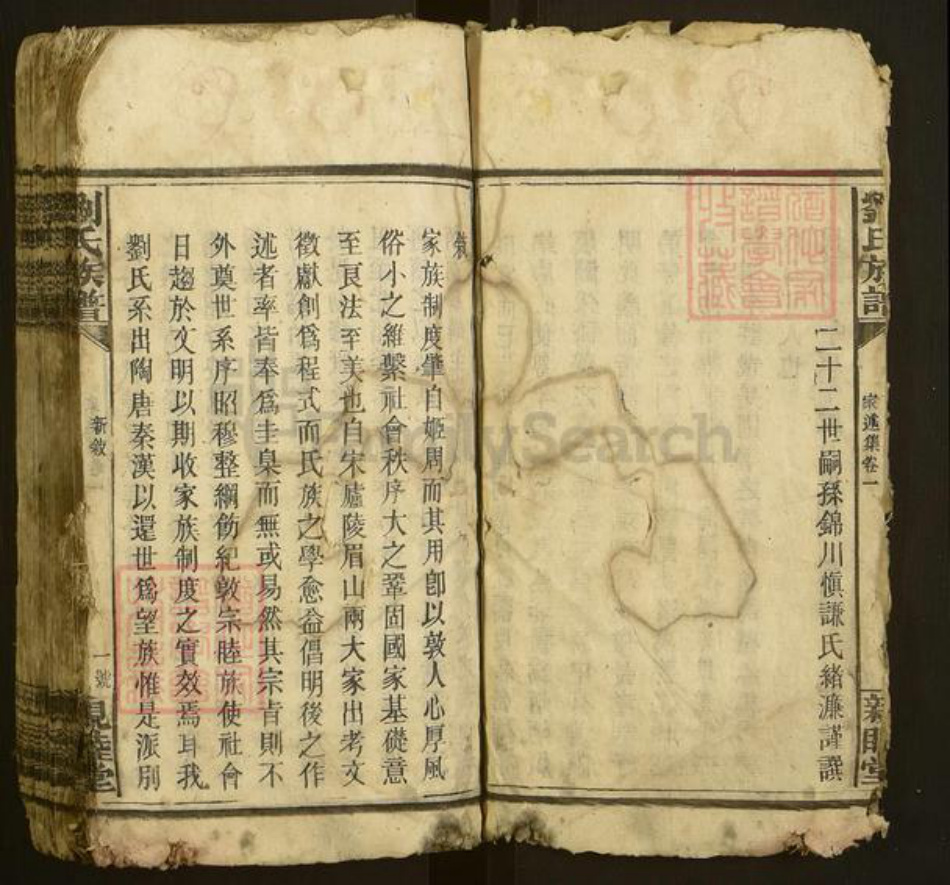 劉氏族譜
家述集卷一
二十二世嗣孫錦川愼謙氏緒濂謹譔
敘
家族制度肇自姬周而其用卽以敦人心厚風
俗小之維繫社會秩序大之鞏固國家基礎意
至良法至美也自宋廬陵眉山兩大家出考文
徵獻創爲程式而氏族之學愈益倡明後之作
述者率皆奉爲圭臬而無或易然其宗旨則不
外奠世系序昭穆整綱飭紀敦宗睦族使社會
日趨於文明以期收家族制度之實效焉耳我
劉氏系出陶唐秦漢以還世爲望族惟是派別
劉氏族譜
新敘
一號
親睦堂
FamilySearch